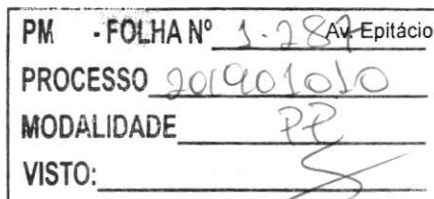 PM - FOLHA Nº 1.287 Av. Epitácio
PROCESSO 201901010
MODALIDADE PP
VISTO: